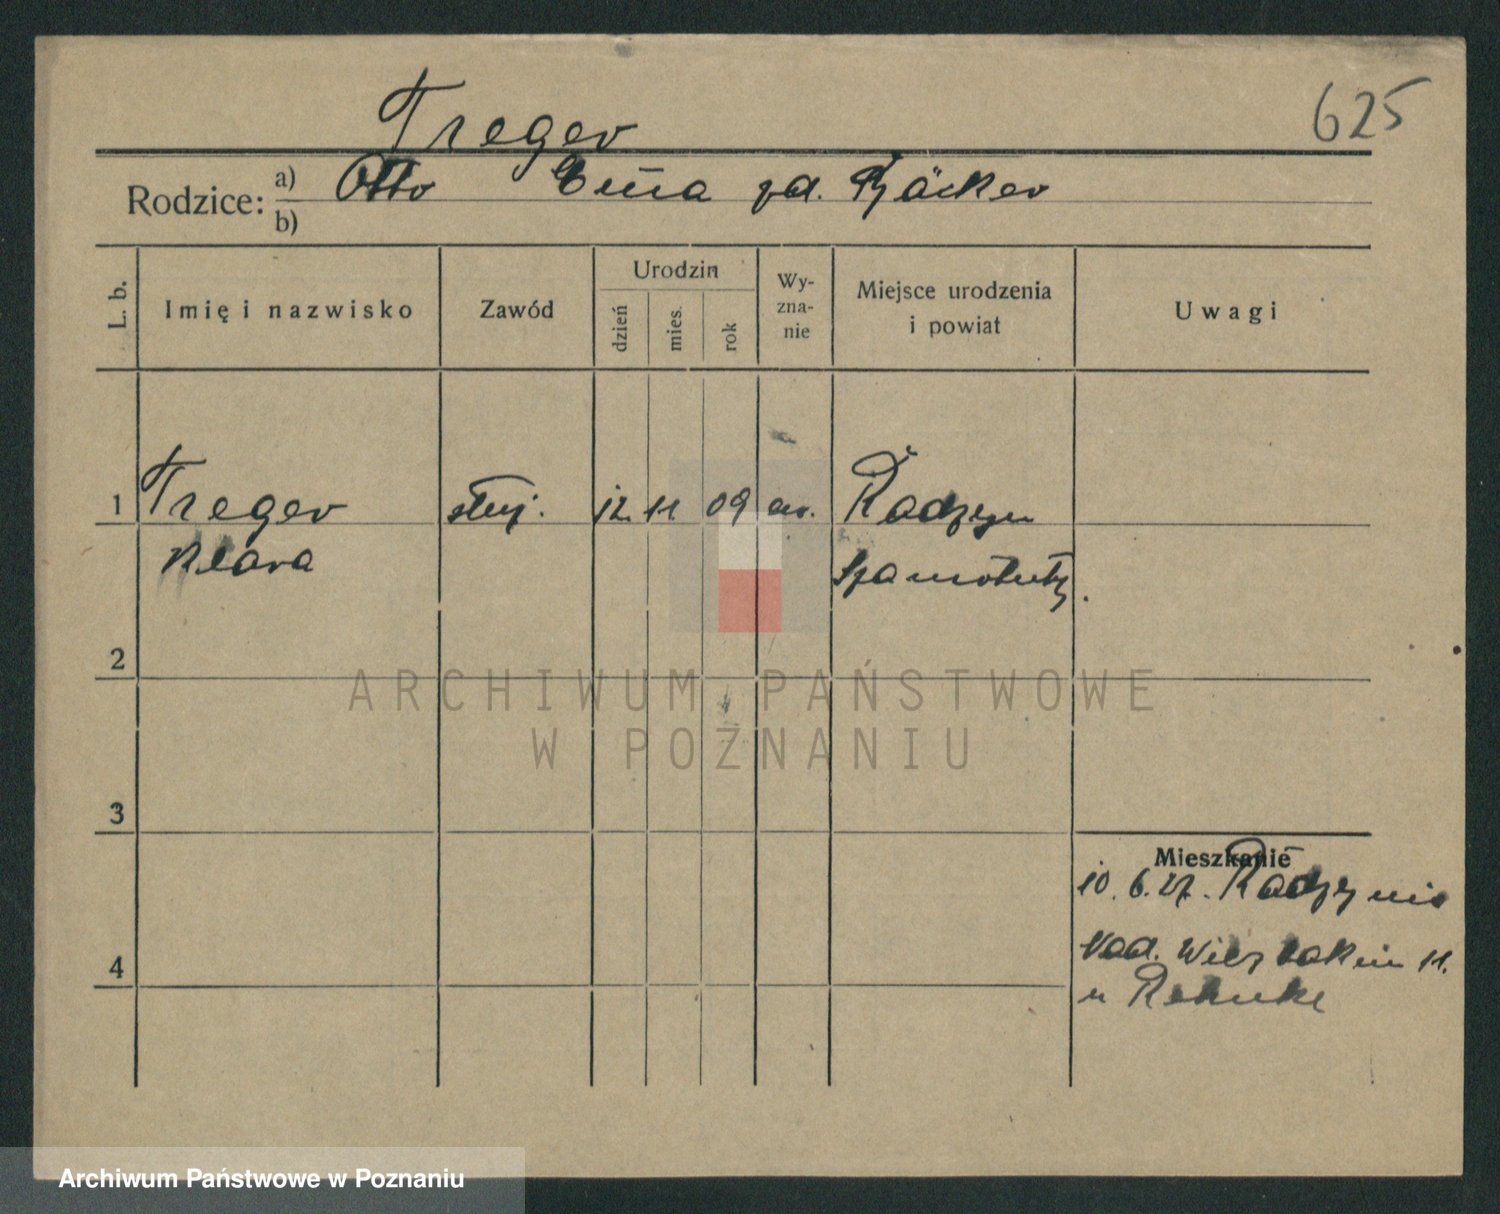 Treger
625
Rodzice: a) Otto Ema zd.
b)
L. b.
Imię i nazwisko
Zawód
Urodzin
dzień
mies.
rok
Wy-
zna-
nie
Miejsce urodzenia
i powiat
Uwagi
1 Treger służ. 12 11 09 ew. Radzyn
Klara Szamotuły.
2
3
4
Mieszkanie
10.6.27. Radzynia
Nad. Wierzbakiem 11.
u
ARCHIWUM PAŃSTWOWE
W POZNANIU
Archiwum Państwowe w Poznaniu